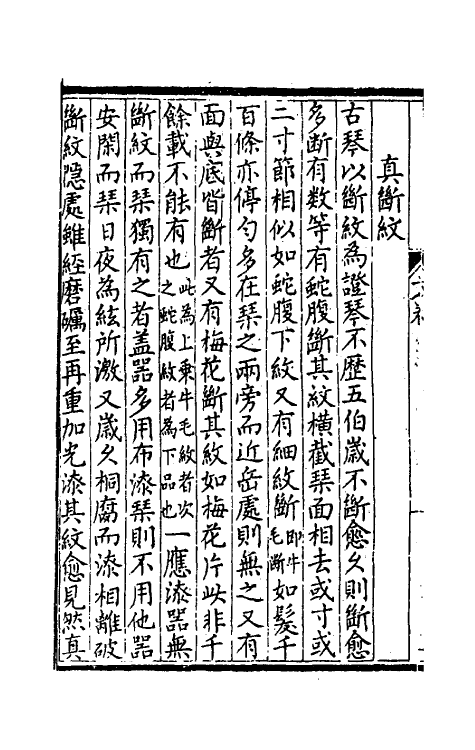 真斷紋
古琴以斷紋為證琴不歴五伯嵗不斷愈久則斷愈
多断有数等有蛇腹斷其紋横截琴面相去或寸或
二寸節相似如蛇腹下紋又有細紋斷即牛毛断如髮千
百條亦停匀多在琴之兩旁而近岳處則無之又有
面與底皆斷者又有梅花斷其紋如梅花片此非千
餘載不能有也此為上乗牛毛紋者次之蛇腹紋者為下品也一應漆器無
斷紋而琴獨有之者盖器多用布漆琴則不用他器
安閑而琴日夜為絃所激又嵗久桐腐而漆相離破
斷紋隱處雖經磨礪至再重加光漆其紋愈見然真